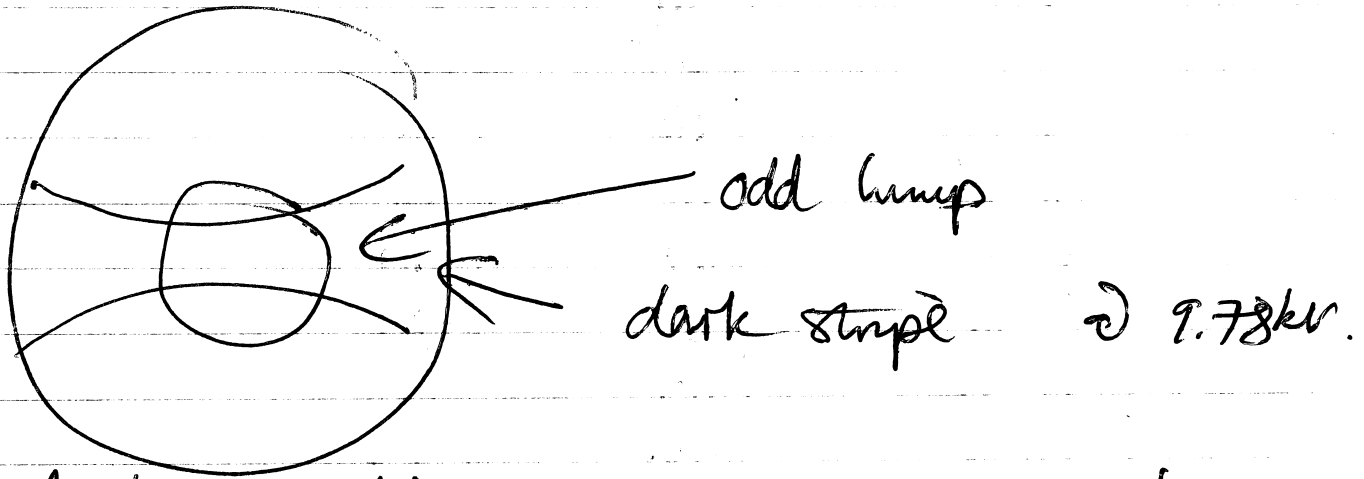 odd lump
dark stripe @ 9.78kV.